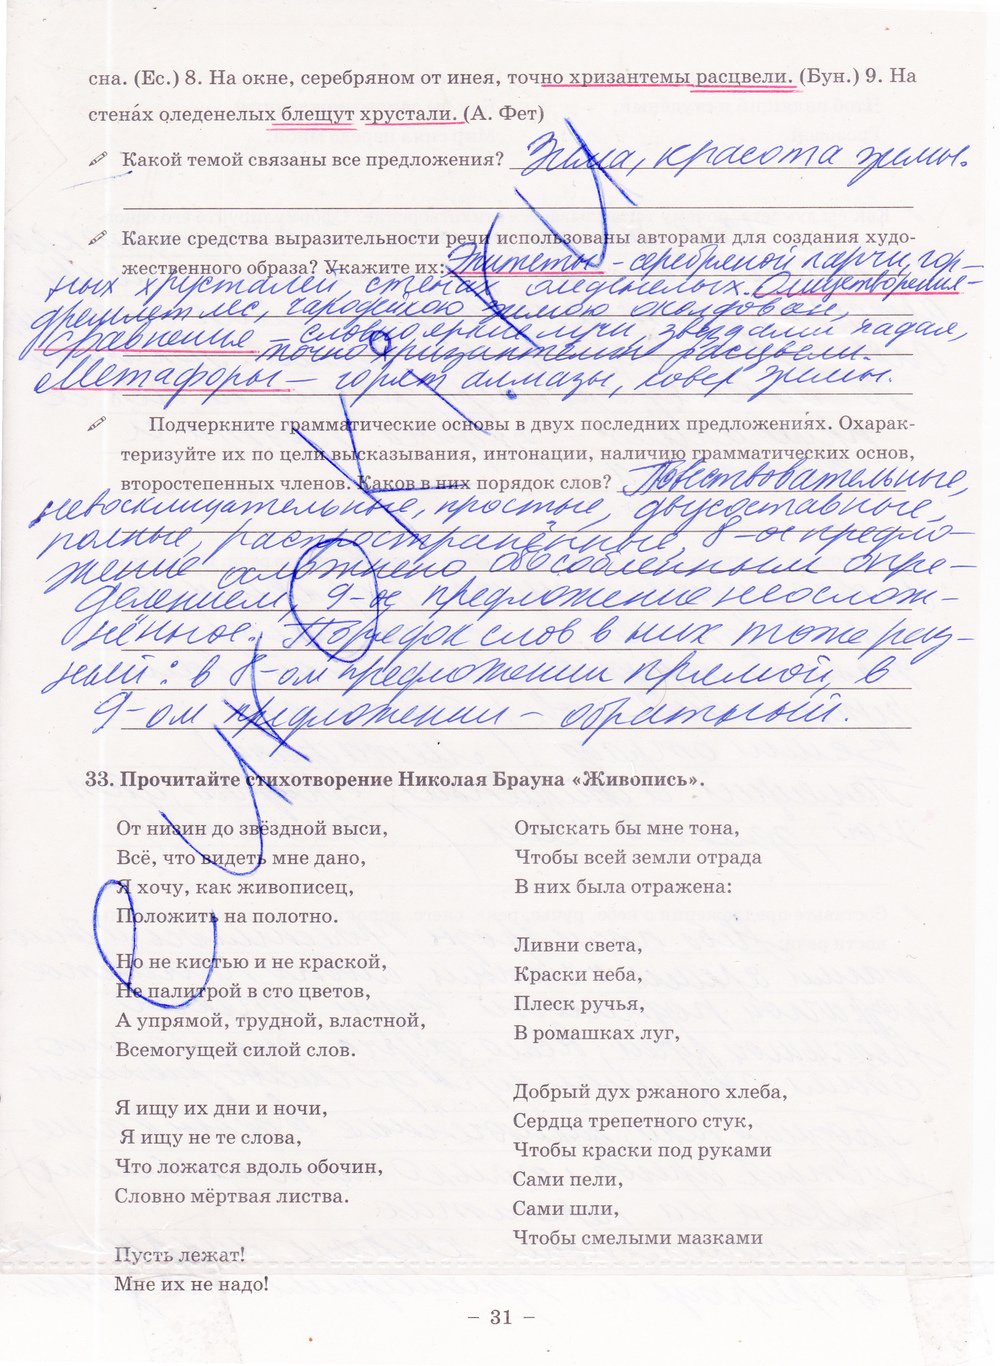 сна. (Ес.) 8. На окне, серебряном от инея, точно хризантемы расцвели. (Бун.) 9. На
стена́х оледенелых блещут хрустали. (А. Фет)
Какой темой связаны все предложения? Зима, красота зимы.
Какие средства выразительности речи использованы авторами для создания худо-
жественного образа? Укажите их: Эпитеты – серебряной парчи, гор-
ных хрусталей, стенах оледенелых. Олицетворения –
дремлет лес, чародейкою зимою околдован,
Сравнения – словно яркие лучи, звездами падая,
точно хризантемы расцвели.
Метафоры – горят алмазы, ковер зимы.
Подчеркните грамматические основы в двух последних предложени́ях. Охарак-
теризуйте их по цели высказывания, интонации, наличию грамматических основ,
второстепенных членов. Каков в них порядок слов? Повествовательные,
невосклицательные, простые, двусоставные,
полные, распространённые, 8-ое предло-
жение осложнено обособленным опре-
делением, 9-ое предложение неослож-
нённое. Порядок слов в них тоже раз-
ный: в 8-ом предложении прямой, в
9-ом предложении – обратный.
33. Прочитайте стихотворение Николая Брауна «Живопись».
От низин до звёздной выси,
Всё, что видеть мне дано,
Я хочу, как живописец,
Положить на полотно.
Но не кистью и не краской,
Не палитрой в сто цветов,
А упрямой, трудной, властной,
Всемогущей силой слов.
Я ищу их дни и ночи,
Я ищу не те слова,
Что ложатся вдоль обочин,
Словно мёртвая листва.
Пусть лежат!
Мне их не надо!
Отыскать бы мне тона,
Чтобы всей земли отрада
В них была отражена:
Ливни света,
Краски неба,
Плеск ручья,
В ромашках луг,
Добрый дух ржаного хлеба,
Сердца трепетного стук,
Чтобы краски под руками
Сами пели,
Сами шли,
Чтобы смелыми мазками
– 31 –